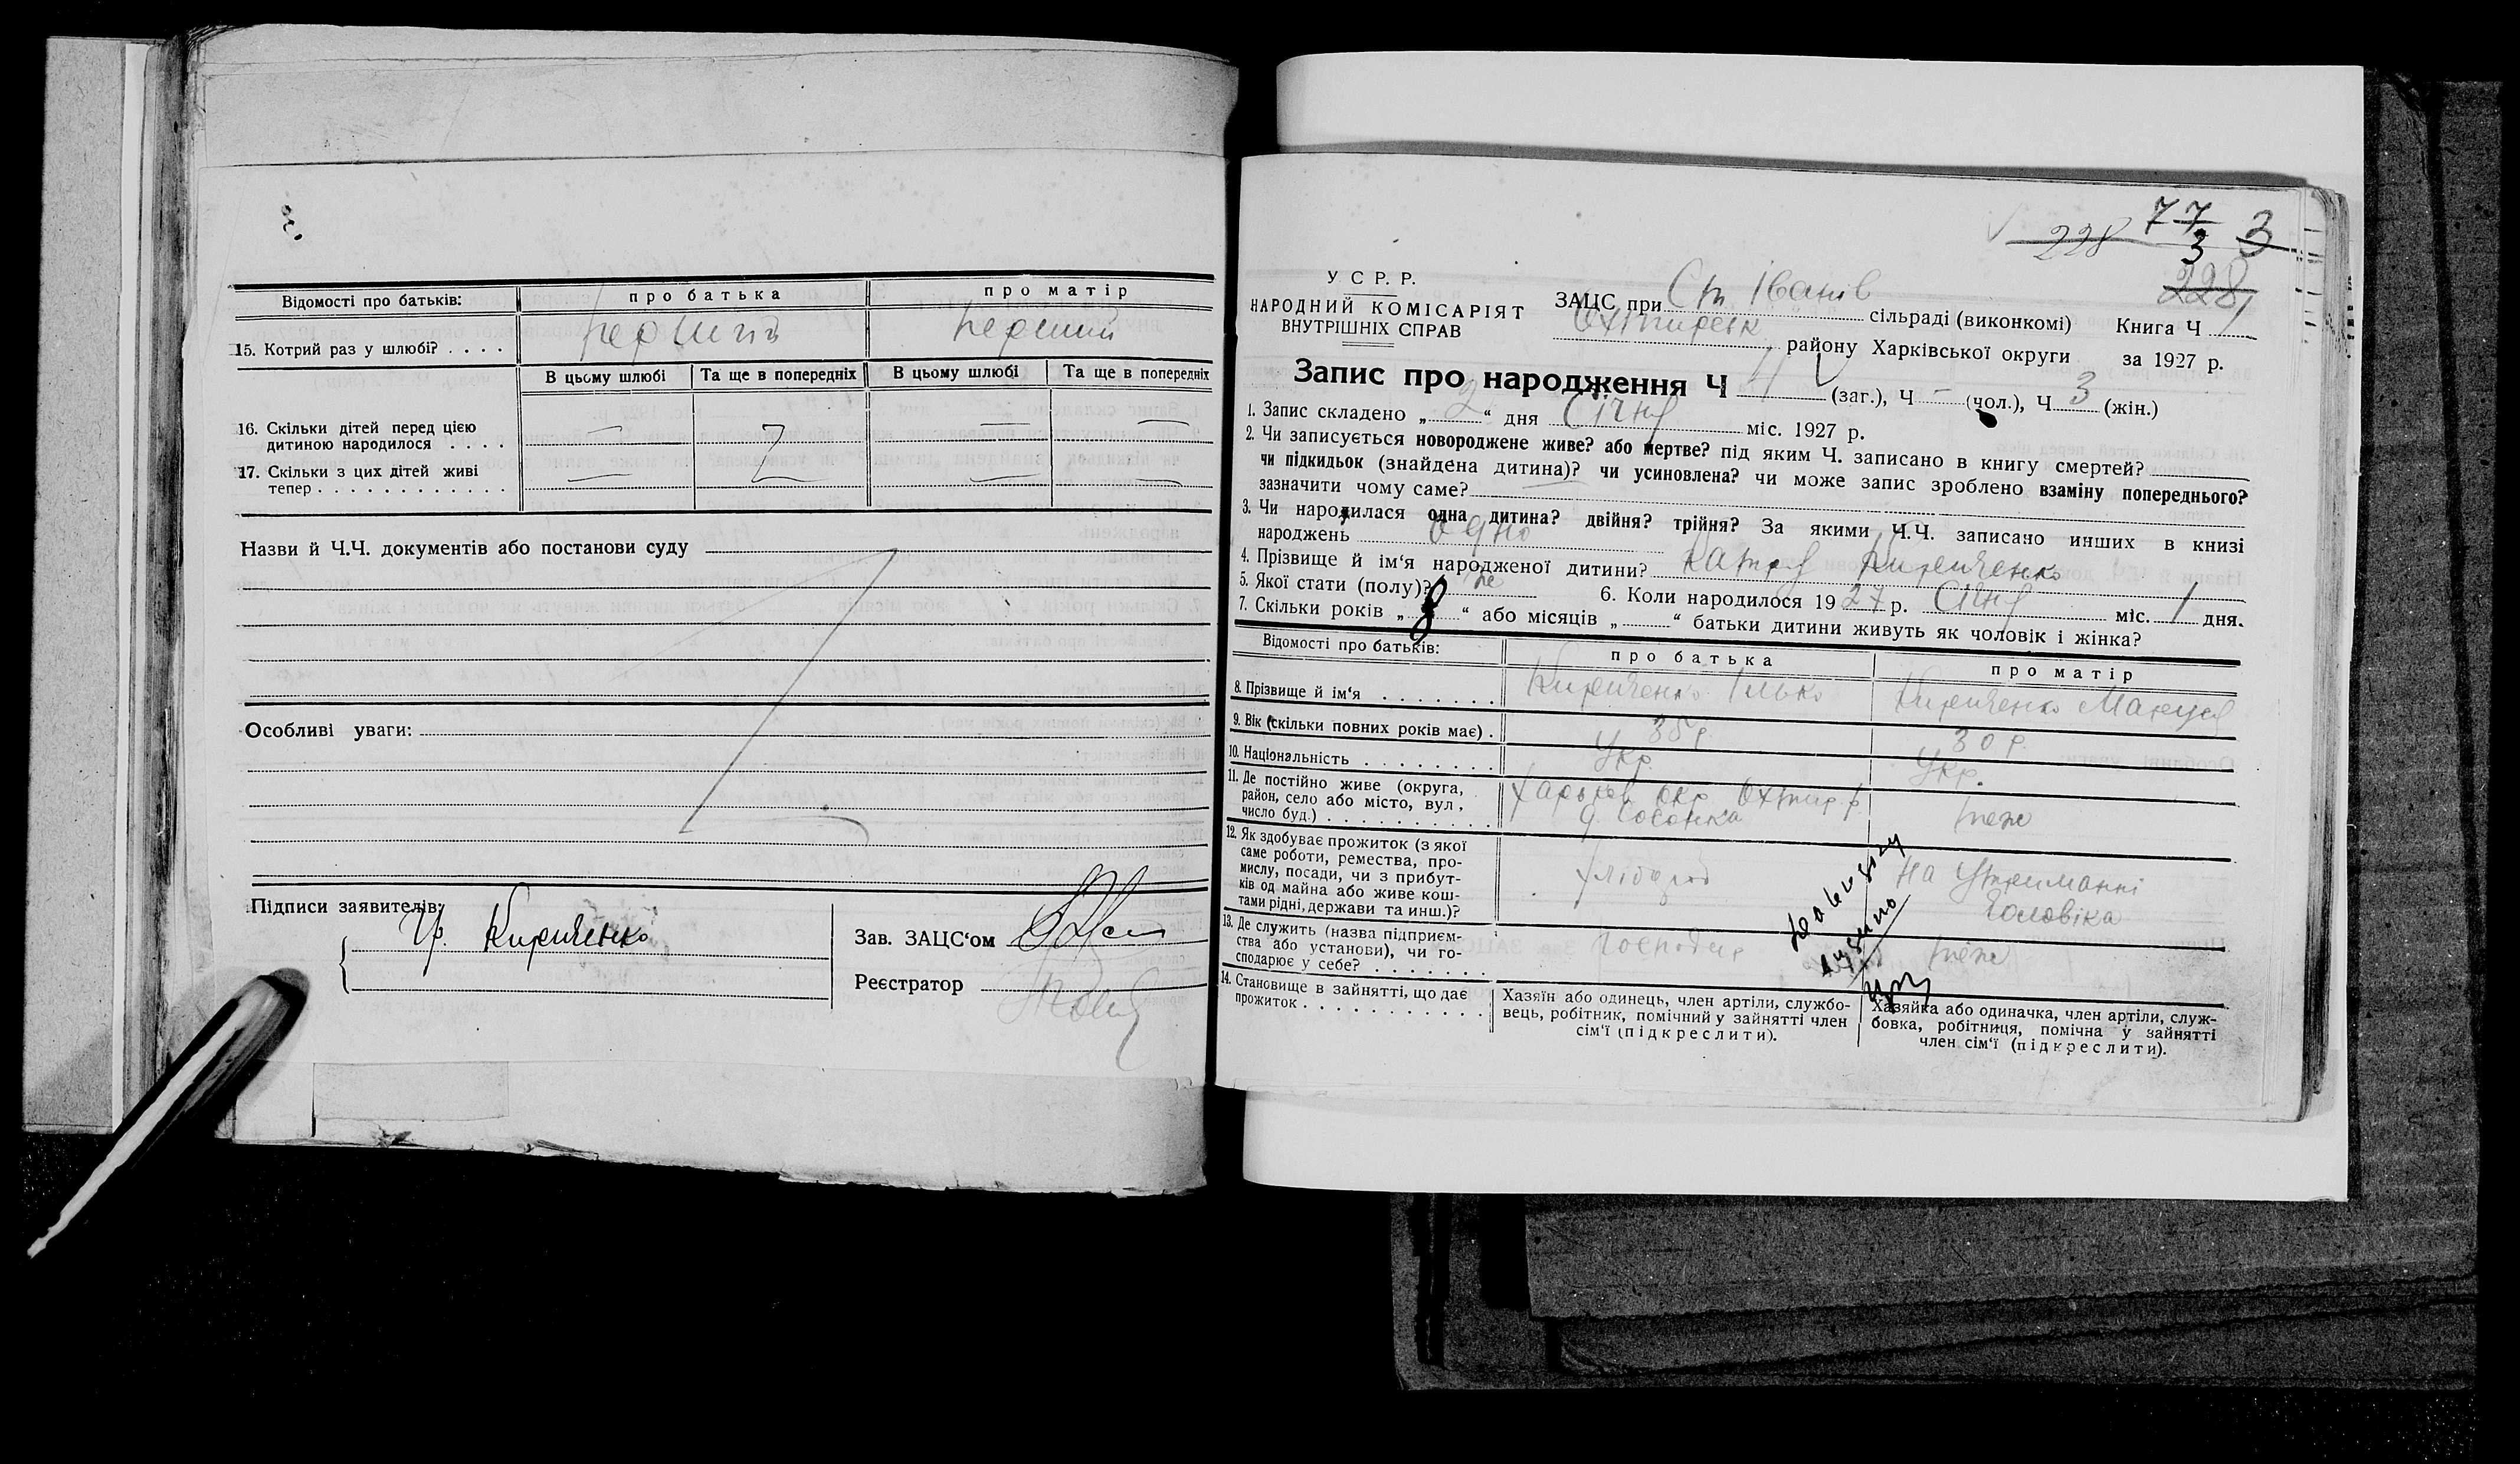 Відомості про батьків: про батька про матір
15. Котрий раз у шлюбі? . . . . перший перший
В цьому шлюбі Та ще в попередніх В цьому шлюбі Та ще в попередніх
16. Скільки дітей перед цією
дитиною народилося . . . . — — —
17. Скільки з цих дітей живі
тепер . . . . . . . . . . . . — — —
Назви й Ч.Ч. документів або постанови суду
Особливі уваги:
Підписи заявителів:
Гр. Кириченко
Зав. ЗАЦС‘ом
Реєстратор
228 77 3
3
228
У С Р. Р.
НАРОДНИЙ КОМІСАРІЯТ
ВНУТРІШНІХ СПРАВ
ЗАЦС при Ст. Іванів сільраді (виконкомі) Книга Ч 1
Охтирськ району Харківської округи за 1927 р.
Запис про народження Ч (заг.), Ч — (чол.), Ч 3 (жін.)
1. Запис складено „ 2 “ дня Січня міс. 1927 р.
2. Чи записується новороджене живе? або мертве? під яким Ч. записано в книгу смертей?
чи підкидьок (знайдена дитина)? чи усиновлена? чи може запис зроблено взаміну попереднього?
зазначити чому саме?
3. Чи народилася одна дитина? двійня? трійня? За якими Ч.Ч. записано инших в книзі
народжень одно
4. Прізвище й ім‘я народженої дитини? Катря Кириченко
5. Якої стати (полу)? же 6. Коли народилося 1927 р. Січня міс. 1 дня.
7. Скільки років „ 8 “ або місяців „ “ батьки дитини живуть як чоловік і жінка?
Відомості про батьків: про батька про матір
8. Прізвище й ім‘я . . . . . . . Кириченко Ілько Кириченко Маруся
9. Вік (скільки повних років має) . 35 р. 30 р.
10. Національність . . . . . . . . Укр. Укр.
11. Де постійно живе (округа,
район, село або місто, вул,
число буд.) . . . . . . . . . . Харьків окр Охтир р теж
12. Як здобуває прожиток (з якої
саме роботи, ремества, про-
мислу, посади, чи з прибут-
ків од майна або живе кош-
тами рідні, держави та инш.)? хлібороб на утриманні
чоловіка
13. Де служить (назва підприєм-
ства або установи), чи го-
сподарює у себе? . . . . . . . теж
14. Становище в зайнятті, що дає
прожиток . . . . . . . . . . .
Хазяїн або одинець, член артіли, службо-
вець, робітник, помічний у зайнятті член
сім‘ї (підкреслити).
Хазяйка або одиначка, член артіли, служ-
бовка, робітниця, помічна у зайнятті
член сім‘ї (підкреслити).